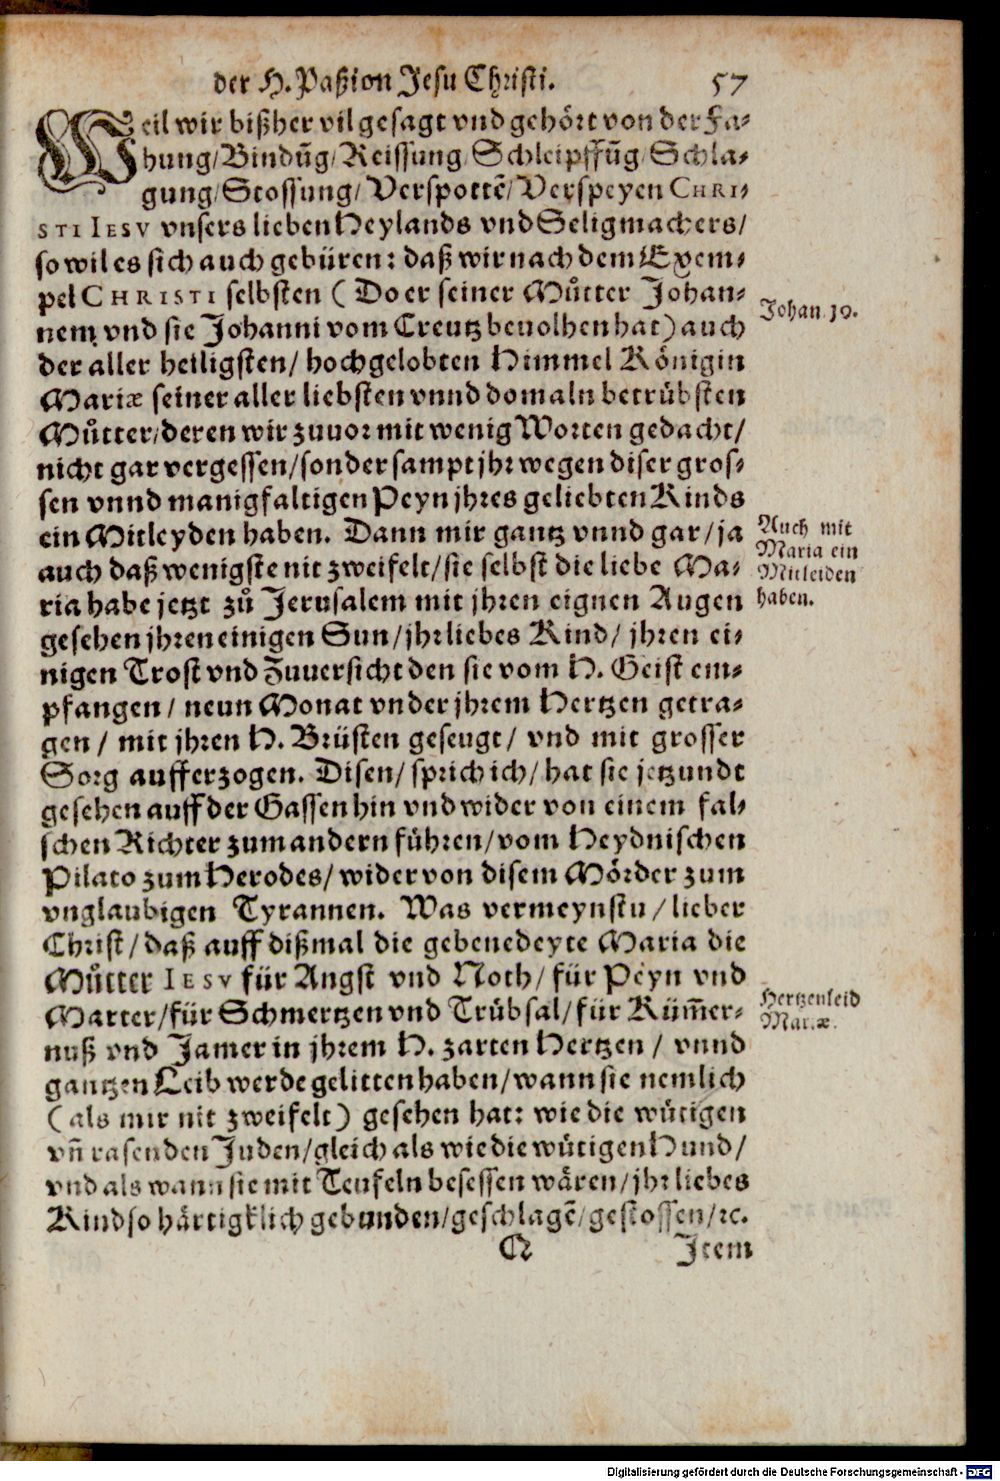 der H. Paßion Jesu Christi. 57
Weil wir bißher vil gesagt vnd gehört von der Fa-
hung/ Bindūg/ Reissung/ Schleipffūg/ Schla-
gung/ Stossung/ Verspottē/ Verspeyen CHRI-
STI IESV vnsers lieben Heylands vnd Seligmachers/
so wil es sich auch gebüren: daß wir nach dem Exem-
pel CHRISTI selbsten (Do er seiner Můtter Johan-
nem vnd sie Johanni vom Creutz beuolhen hat) auch
Johan. 19.
der aller heiligsten/ hochgelobten Himmel Königin
Mariæ seiner aller liebsten vnnd domaln betrübsten
Můtter/ deren wir zuuor mit wenig Worten gedacht/
nicht gar vergessen/ sonder sampt jhr wegen diser gros-
sen vnnd manigfaltigen Peyn jhres geliebten Kinds
ein Mitleyden haben. Dann mir gantz vnnd gar/ ja
auch daß wenigste nit zweifelt/ sie selbst die liebe Ma-
ria habe jetzt zů Jerusalem mit jhren eignen Augen
Auch mit
Maria ein
Mitleiden
haben.
gesehen jhren einigen Sun/ jhr liebes Kind/ jhren ei-
nigen Trost vnd Zuuersicht den sie vom H. Geist em-
pfangen/ neun Monat vnder jhrem Hertzen getra-
gen/ mit jhren H. Brüsten geseugt/ vnd mit grosser
Sorg aufferzogen. Disen/ sprich ich/ hat sie jetzundt
gesehen auff der Gassen hin vnd wider von einem fal-
schen Richter zum andern führen/ vom Heydnischen
Pilato zum Herodes/ wider von disem Mörder zum
vnglaubigen Tyrannen. Was vermeynstu/ lieber
Christ/ daß auff dißmal die gebenedeyte Maria die
Můtter IESV für Angst vnd Noth/ für Peyn vnd
Marter/ für Schmertzen vnd Trübsal/ für Küm̄er-
Hertzenleid
Mariæ.
nuß vnd Jamer in jhrem H. zarten Hertzen/ vnnd
gantzen Leib werde gelitten haben/ wann sie nemlich
(als mir nit zweifelt) gesehen hat: wie die wütigen
vn̄ rasenden Juden/ gleich als wie die wütigen Hund/
vnd als wann sie mit Teufeln besessen wären/ jhr liebes
Kind so härtigklich gebunden/ geschlagē/ gestossen/ ꝛc.
Q Item
Digitalisierung gefördert durch die Deutsche Forschungsgemeinschaft - DFG